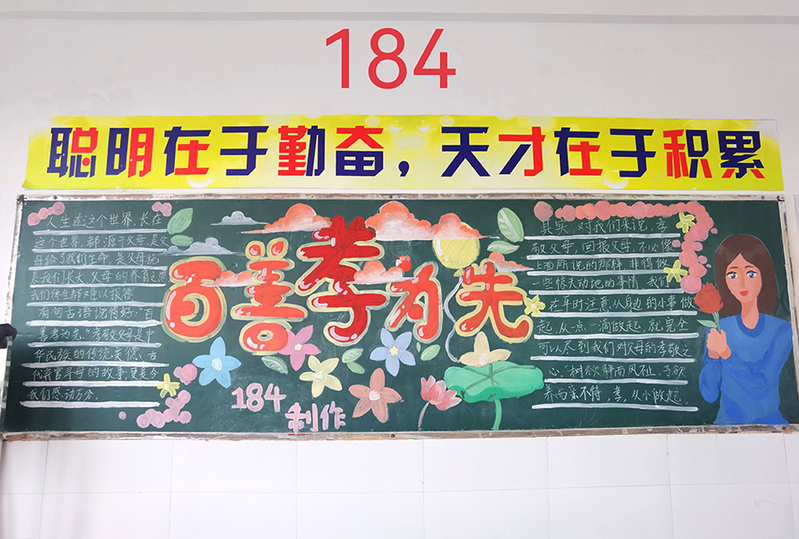 184
聪明在于勤奋，天才在于积累
百善孝为先
人生在这个世界，长在
这个世界，都源于父辈，是父
母给予我们生命，是父母把
我们养大，父母的养育之恩
我们终生都难以报答
有句古语说得好：百
善孝为先，孝敬父母是中
华民族的传统美德，古
代有
我们感动万分。
其实，对我们来说，孝
敬父母，回报父母，不必像
上面所说的那样，非得做
一些惊天动地的事情，我们
在平时注意从身边的小事做
起，从一点一滴做起，就完全
可以尽到我们对父母的孝敬之
心，树欲静而风不止，子欲
养而亲不待，孝，从小做起。
184
制作